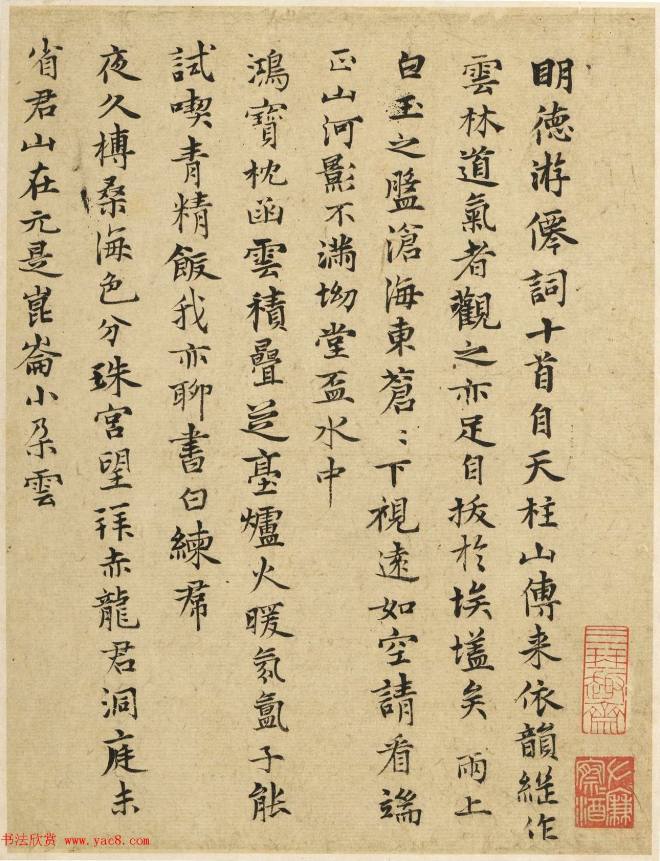 明德游僊詞十首自天柱山傳来依韻継作
雲林道氣者觀之亦足自拔於埃壒矣 兩上
白玉之盤滄海東蒼〻下視遠如空請看端
正山河影不滿坳堂盃水中
鴻寶枕函雲積疊芝臺爐火暖氛氳子能
試喫青精飯我亦聊書白練帬
夜久榑桑海色分珠宮望拜赤龍君洞庭未
省君山在元是崑崙小朶雲
书法欣赏 www.yac8.com